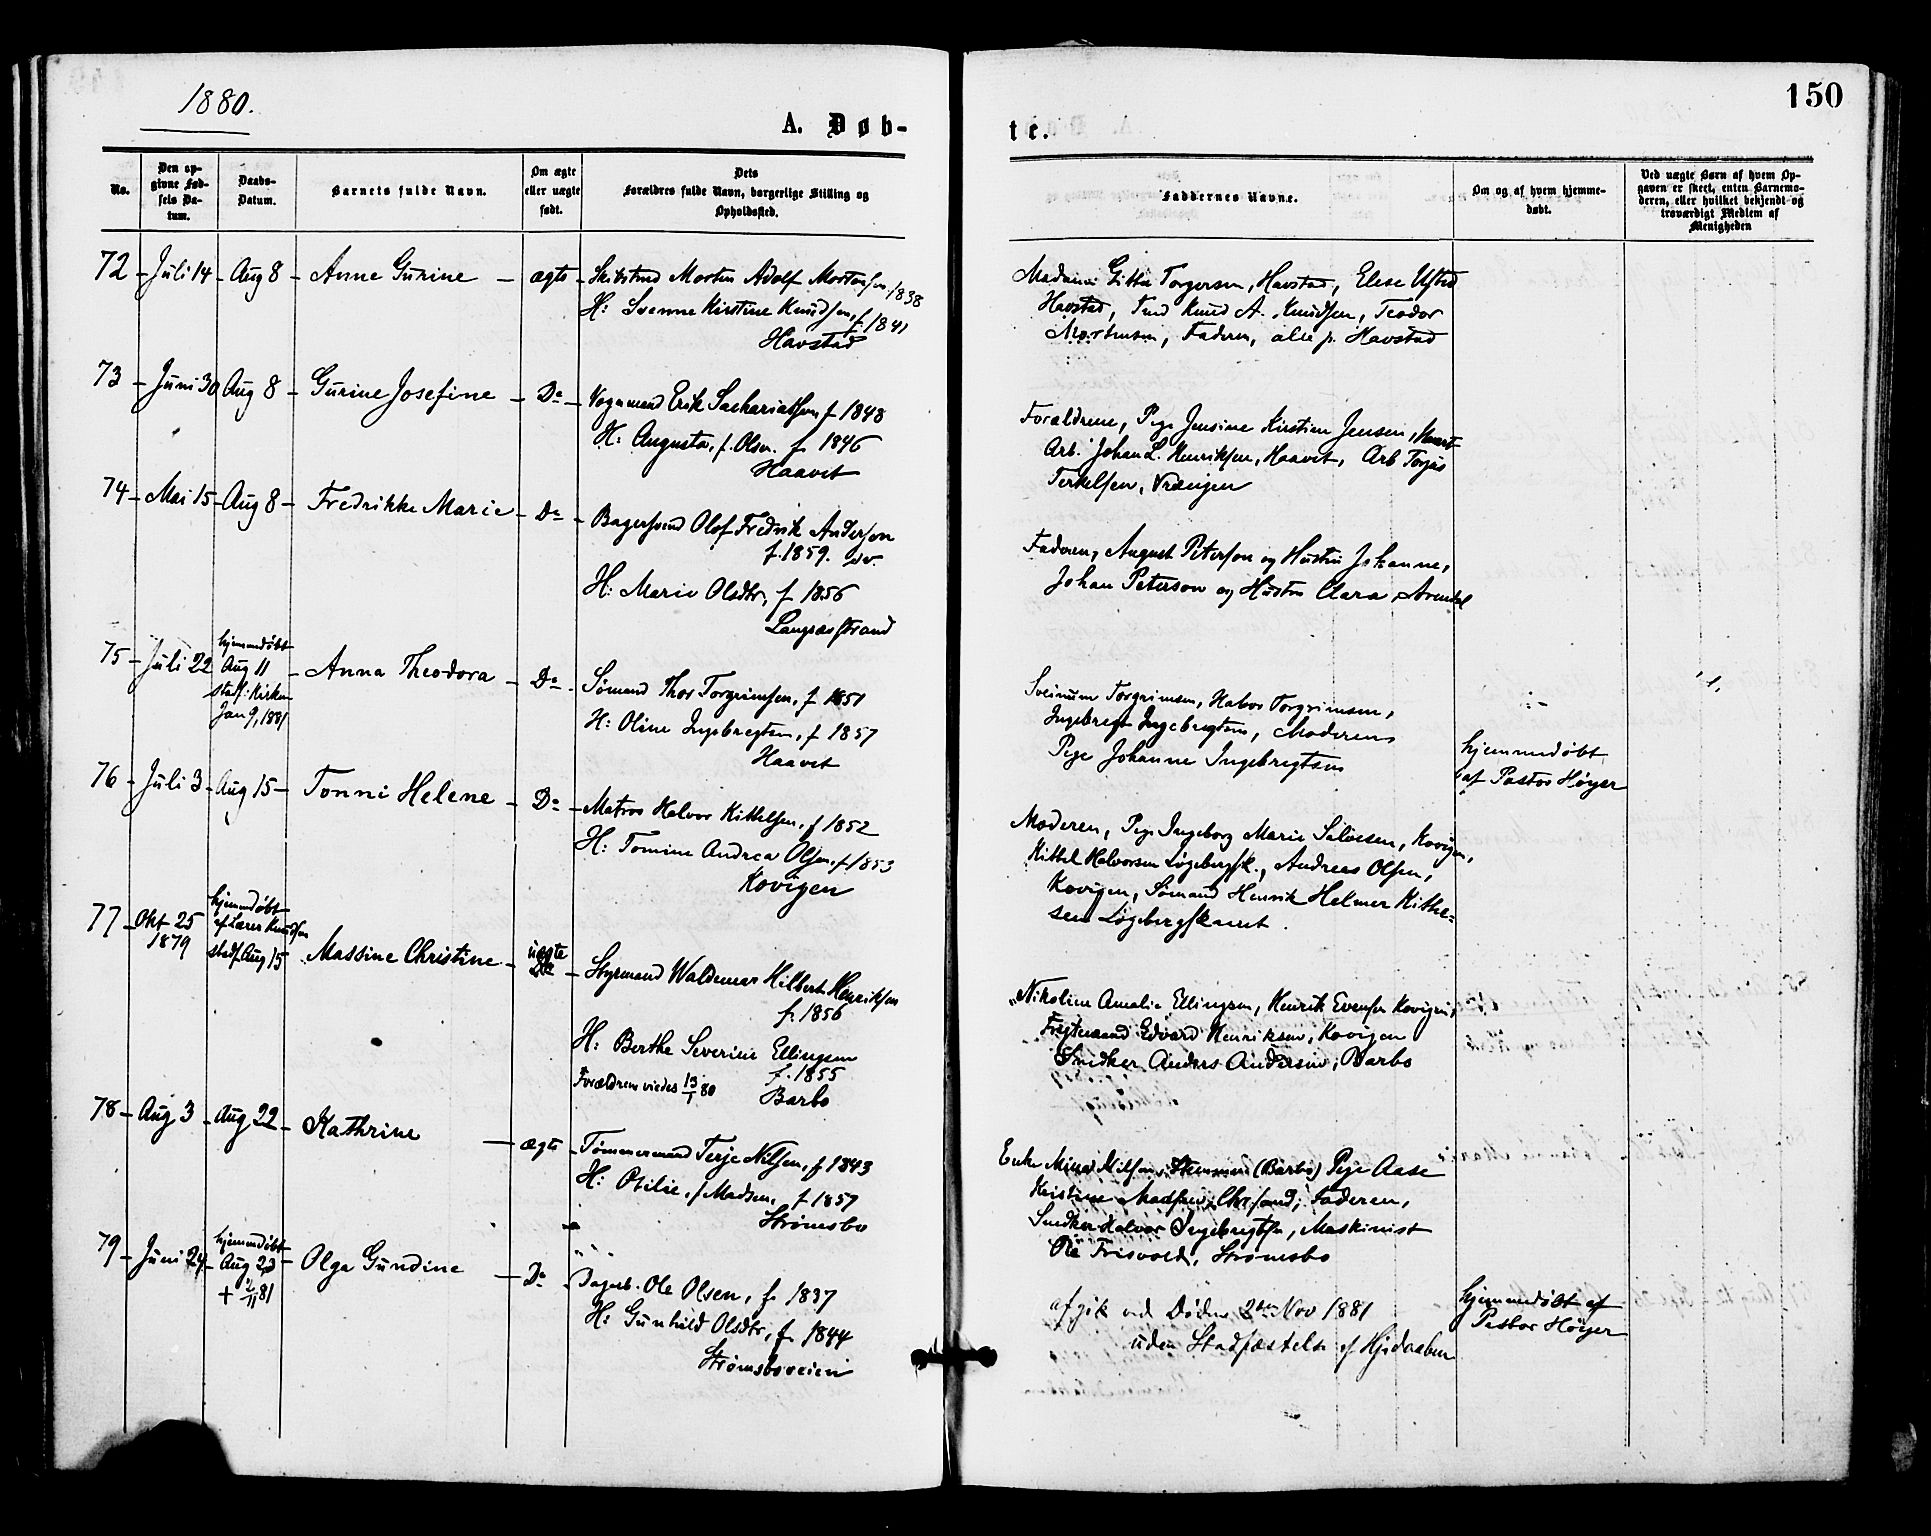 1880.
150
A. Døb-
te.
No.
Den op-
givne Fød-
sels Da-
tum.
Daabs-
Datum.
Barnets fulde Navn.
Om ægte
eller uægte
født.
Dets
Forældres fulde Navn, borgerlige Stilling og
Opholdssted.
Faddernes Navne.
Om og af hvem hjemme-
døbt.
Ved uægte Børn af hvem Op-
gaven er skeet, enten Barnemo-
deren, eller hvilket bekjendt og
troværdigt Medlem af
Menigheden
72 - Juli 14 - Aug 8 - Anne Gurine - ægte - Morten Adolf Mortensen f. 1838
H: Svenne Kirstine Knudsen, f 1841
Havstad
Gitte Torgersen, Havstad, Elise
Havstad, Knud A. Knudsen, Teodor
Mortensen, Faderen, alle p. Havstad
73 - Juni 30 Aug 8 - Gurine Josefine - Do - Vognmand Erik Sachariassen f 1848
H: Augusta, f. Olsen. f 1846
Haavet
Forældrene, Pige Jensine Kirstine Jensen,
Arb. Johan L. Henriksen, Haavet, Arb Torjus
Terkelsen, Vrængen
74 - Mai 15 - Aug 8 - Fredrikke Marie - Do - Bagersvend Olof Fredrik Anderson
f. 1859. sv.
H: Marie Olsdtr, f 1856
Langsæstrand
Faderen, August Peterson og Hustru Johanne,
Johan Peterson og Hustru Clara, Arendal
75 - Juli 22 hjemmedøbt
Aug 11
stadf. i Kirken
Jan 9, 1881
- Anna Theodora - Do - Sømand Thor Torgrimsen, f 1851
H: Oline Ingebregtsen, f 1857
Haavet
Torgrimsen, Halvor Torgrimsen,
Ingebregt Ingebregtsen, Moderen
Pige Johanne Ingebregtsen
hjemmedøbt
af Pastor Høyer
76 - Juli 3 - Aug 15 - Tonni Helene - Do - Matros Halvor Kittelsen, f 1852
H: Tomine Andrea Olsen, f 1853
Kovigen
Moderen, Pige Ingeborg Marie Salvesen, Kovigen,
Kittel Halvorsen Løgebergsk., Andreas Olsen,
Kovigen, Sømand Henrik Helmer Kittel=
sen Løgebergskaaret.
77 - Okt 25
1879
hjemmedøbt
af Lærer Knudsen
stadf. Aug 15
Massine Christine - uægte
Do - Styrmand Waldemar Hilbert Henriksen
f. 1856
H: Berthe Severine Ellingsen
f. 1855
Forældrene viedes 13/1 80 Barbo
Nikoline Amalie Ellingsen, Henrik Evensen Kovigen,
Edvard Henriksen, Kovigen
Snedker Anders Andersen, Barbo
78 - Aug 3 - Aug 22 - Kathrine - ægte - Tømmermand Terje Nilsen, f 1843
H: Otilie, f Madsen, f 1857
Strømsbo
Enke Nilsen, (Barbo) Pige Aase
Kristine Madsen, Chrsand; Faderen,
Snedker Halvor Ingebregtsen, Maskinist
Ole Frisvold, Strømsbo
79 - Juni 24 - hjemmedøbt
Aug 23
+ 2/11 81
- Olga Gundine - Do - Dagarb. Ole Olsen, f 1837
H: Gunhild Olsdtr, f 1844
Strømsboveien
afgik ved Døden 2den Nov 1881
uden Stadfæstelse af Hjdaaben
hjemmedøbt af
Pastor Høyer